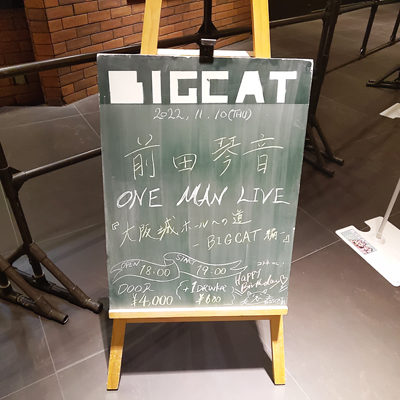 BIGCAT
2022. 11. 10 (THU)
前田琴音
ONE MAN LIVE
『大阪城ホールへの道
-BIGCAT編-』
OPEN 18:00 START 19:00
DOOR ¥4,000 (+1DRINK ¥600)
Happy Birthday♡